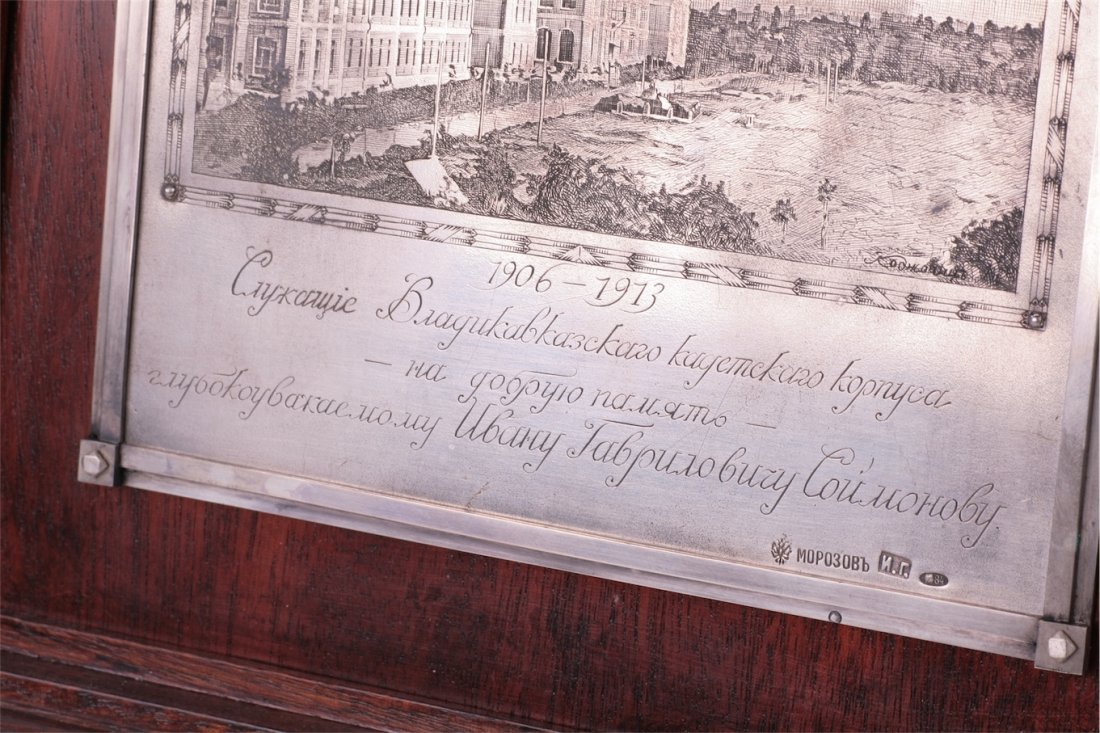 1906 – 1913
Служащіе Владикавказскаго кадетскаго корпуса
— на добрую память —
глубокоуважаемому Ивану Гавриловичу Соймонову.
МОРОЗОВЪ И.Г. 84